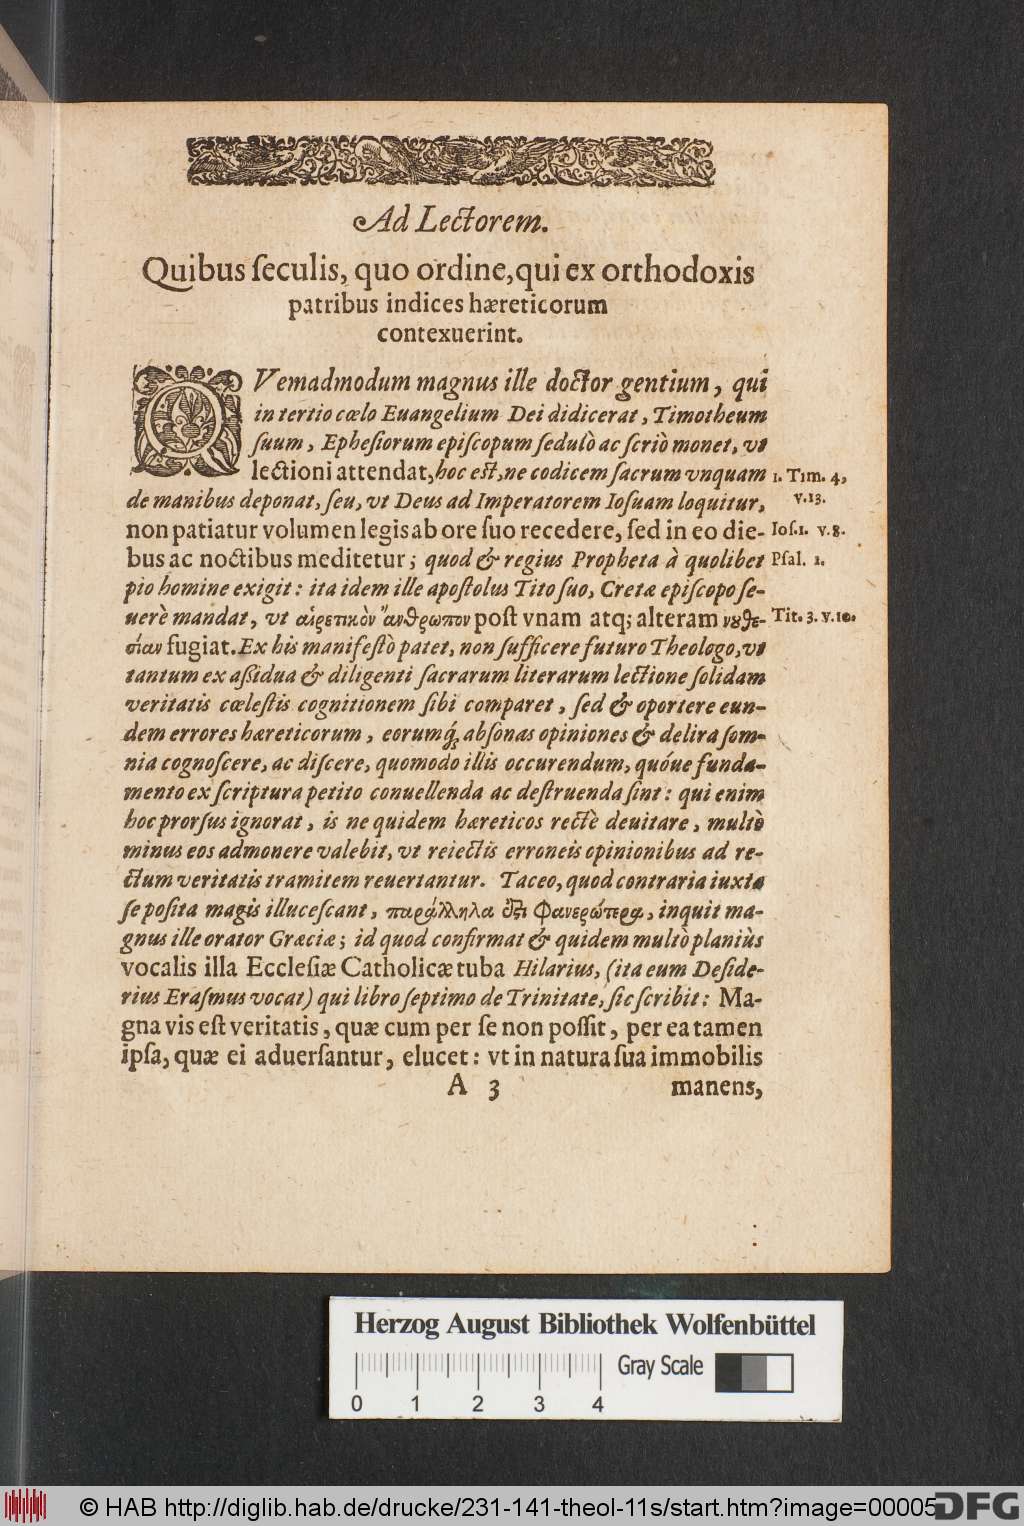 Ad Lectorem.
Quibus ſeculis, quo ordine, qui ex orthodoxis
patribus indices hæreticorum
contexuerint.
QVemadmodum magnus ille doctor gentium, qui
in tertio cœlo Euangelium Dei didicerat, Timotheum
ſuum, Epheſiorum epiſcopum ſedulò ac ſeriò monet, vt
lectioni attendat, hoc eſt, ne codicem ſacrum vnquam 1. Tim. 4,
de manibus deponat, ſeu, vt Deus ad Imperatorem Ioſuam loquitur, v. 13.
non patiatur volumen legis ab ore ſuo recedere, ſed in eo die- Ioſ. 1. v. 8.
bus ac noctibus meditetur; quod & regius Propheta à quolibet Pſal. 1.
pio homine exigit: ita idem ille apoſtolus Tito ſuo, Cretæ epiſcopo ſe-
uerè mandat, vt αἱρετικὸν ἄνθρωπον poſt vnam atq; alteram νουθε- Tit. 3. v. 10.
σίαν fugiat. Ex his manifeſtò patet, non ſufficere futuro Theologo, vt
tantum ex aſsidua & diligenti ſacrarum literarum lectione ſolidam
veritatis cœleſtis cognitionem ſibi comparet, ſed & oportere eun-
dem errores hæreticorum, eorumq́; abſonas opiniones & delira ſom-
nia cognoſcere, ac diſcere, quomodo illis occurendum, quóue funda-
mento ex ſcriptura petito conuellenda ac deſtruenda ſint: qui enim
hoc prorſus ignorat, is ne quidem hæreticos rectè deuitare, multò
minus eos admonere valebit, vt reiectis erroneis opinionibus ad re-
ctum veritatis tramitem reuertantur. Taceo, quod contraria iuxta
ſe poſita magis illuceſcant, παράλληλα ὅτι φανερώτερα, inquit ma-
gnus ille orator Græciæ; id quod confirmat & quidem multò planiùs
vocalis illa Eccleſiæ Catholicæ tuba Hilarius, (ita eum Deſide-
rius Eraſmus vocat) qui libro ſeptimo de Trinitate, ſic ſcribit: Ma-
gna vis eſt veritatis, quæ cum per ſe non poſſit, per ea tamen
ipſa, quæ ei aduerſantur, elucet: vt in natura ſua immobilis
A 3 manens,
Herzog August Bibliothek Wolfenbüttel
Gray Scale
0 1 2 3 4
© HAB http://diglib.hab.de/drucke/231-141-theol-11s/start.htm?image=00005
DFG